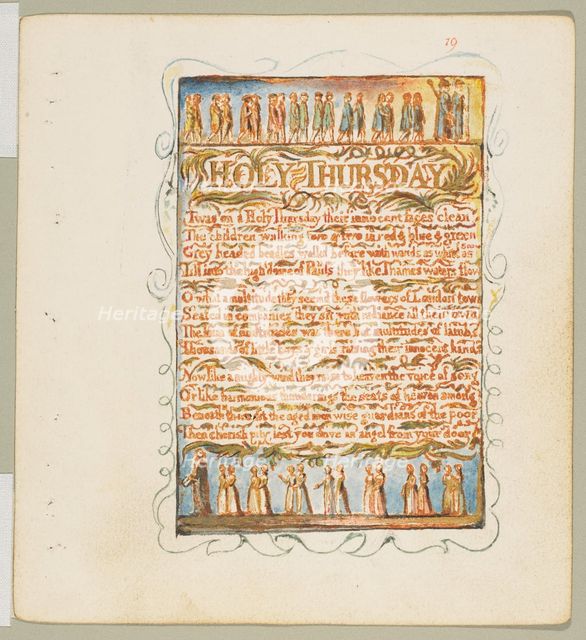 19
HOLY THURSDAY
Twas on a Holy Thursday their innocent faces clean
The children walking two & two in red & blue & green
Grey headed beadles walkd before with wands as white as snow
Till into the high dome of Pauls they like Thames waters flow
O what a multitude they seemd these flowers of London town
Seated in companies they sit with radiance all their own
The hum of multitudes was there but multitudes of lambs
Thousands of little boys & girls raising their innocent hands
Now like a mighty wind they raise to heaven the voice of song
Or like harmonious thunderings the seats of heaven among
Beneath them sit the aged men wise guardians of the poor
Then cherish pity, lest you drive an angel from your door
Heritage
Heritage
Heritage